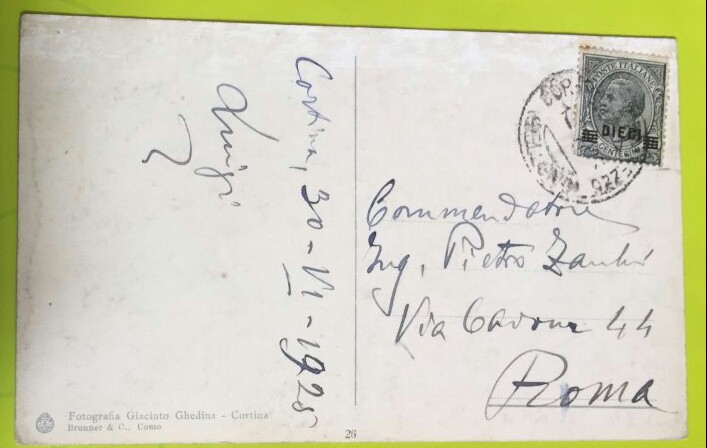 Cortina, 30-VI-1925
Luigi
POSTE ITALIANE
DIECI
CENTESIMI
Commendatore
Ing. Pietro
Via Cavour 44
Roma
Fotografia Giacinto Ghedina - Cortina
Brunner & C., Como
26